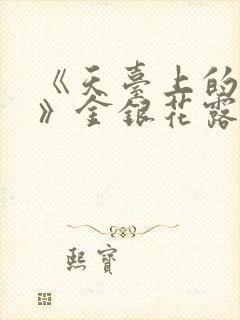 《天臺上的
》金銀花露
熙寶